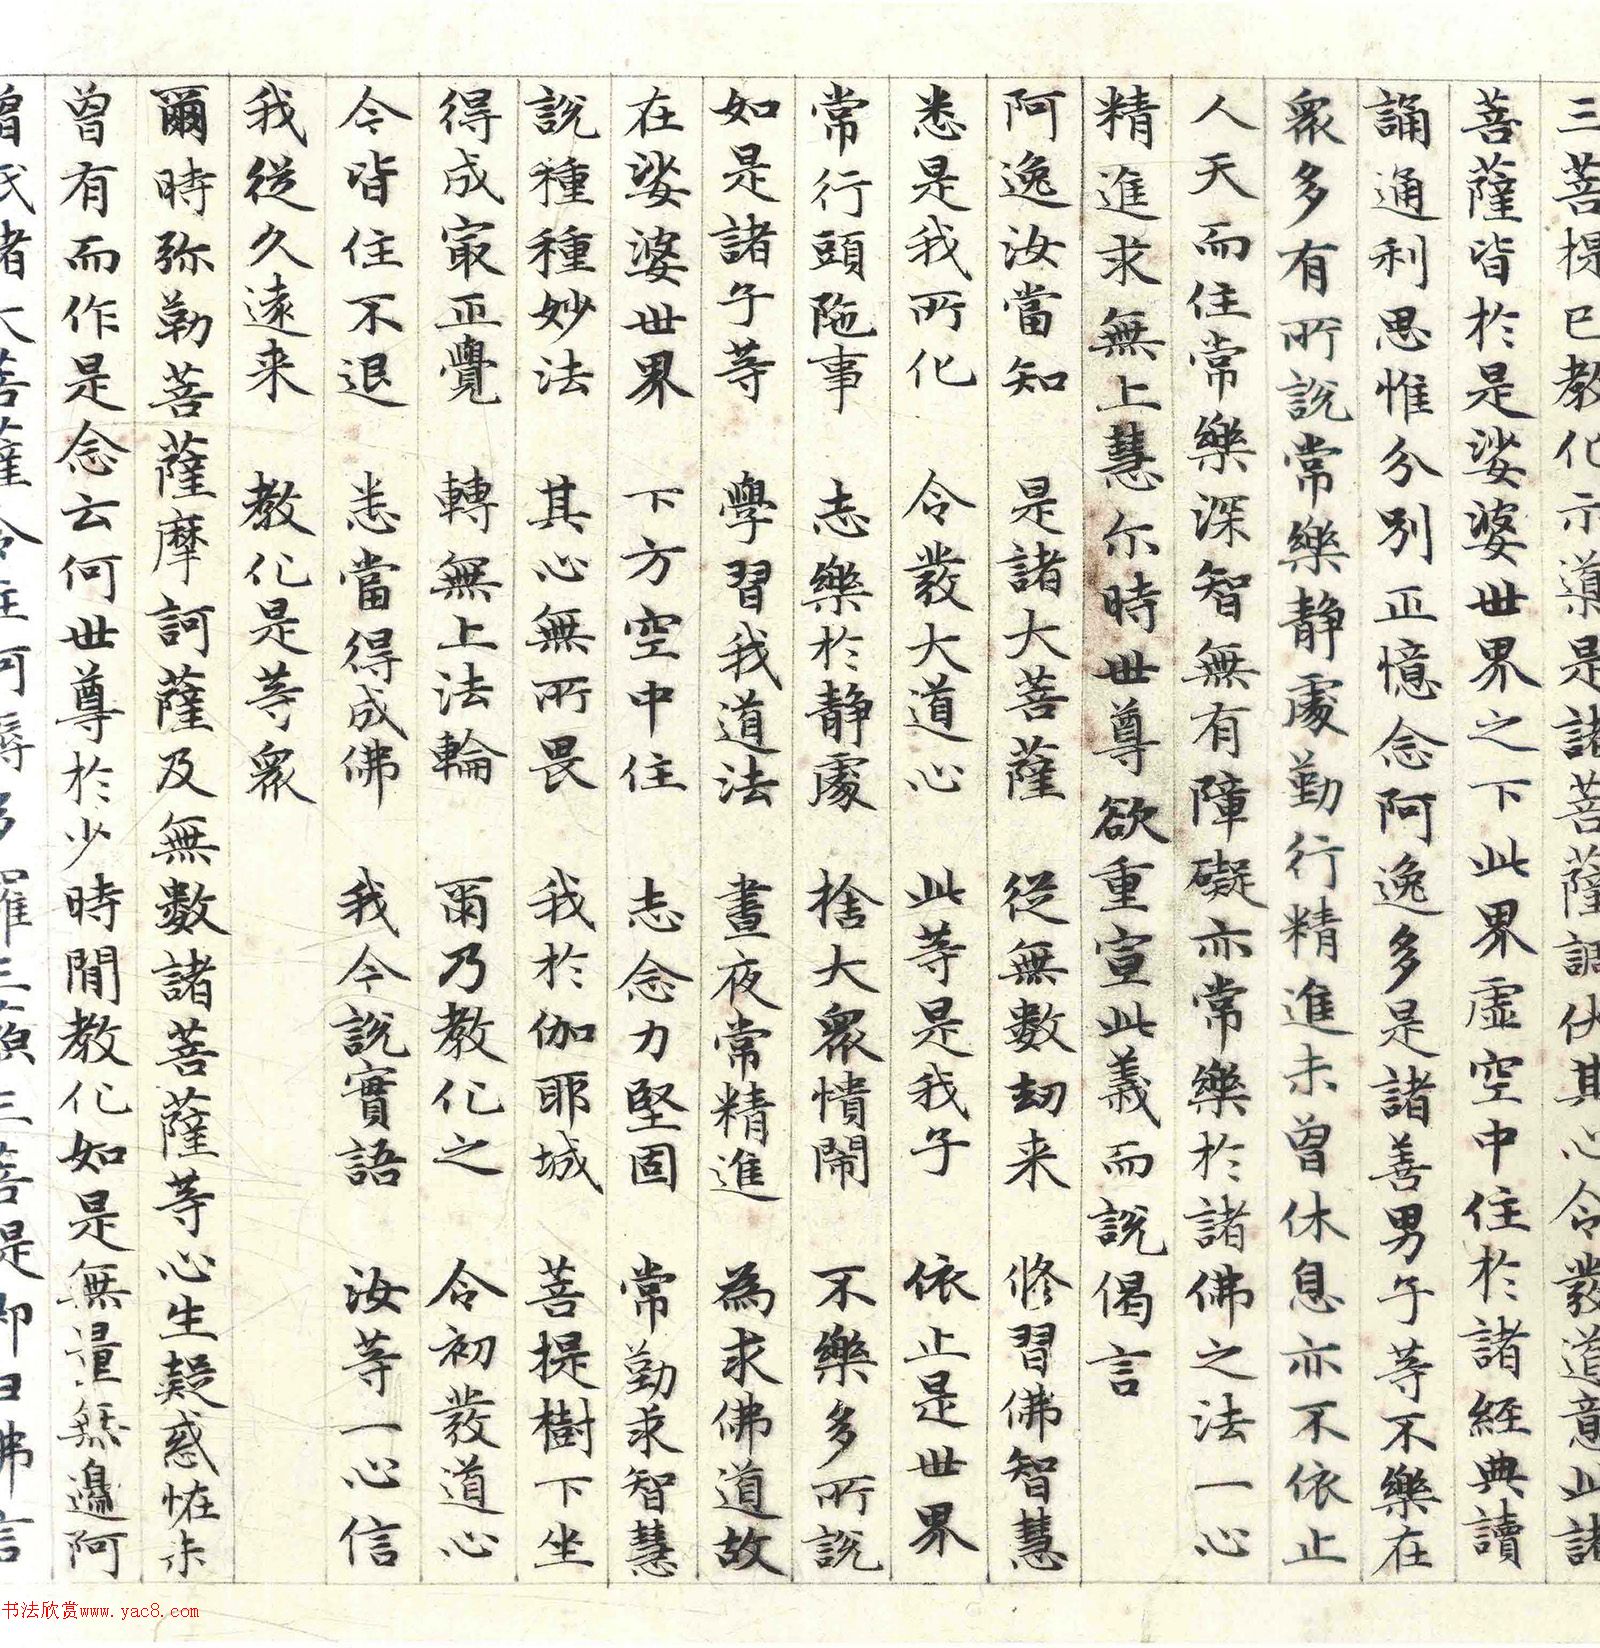 三菩提已教化示導是諸菩薩調伏其心令發道意此諸
菩薩皆於是娑婆世界之下此界虛空中住於諸經典讀
誦通利思惟分別正憶念阿逸多是諸善男子等不樂在
眾多有所說常樂靜處勤行精進未曾休息亦不依止
人天而住常樂深智無有障礙亦常樂於諸佛之法一心
精進求無上慧尒時世尊欲重宣此義而說偈言
阿逸汝當知 是諸大菩薩 從無數劫来 修習佛智慧
悉是我所化 令發大道心 此等是我子 依止是世界
常行頭陁事 志樂於靜處 捨大眾憒閙 不樂多所說
如是諸子等 學習我道法 晝夜常精進 為求佛道故
在娑婆世界 下方空中住 志念力堅固 常勤求智慧
說種種妙法 其心無所畏 我於伽耶城 菩提樹下坐
得成冣正覺 轉無上法輪 爾乃教化之 令初發道心
今皆住不退 悉當得成佛 我今說實語 汝等一心信
我從久遠来 教化是等眾
爾時弥勒菩薩摩訶薩及無數諸菩薩等心生疑惑恠未
曾有而作是念云何世尊於少時間教化如是無量無邊阿
僧祇諸大菩薩令住阿耨多羅三藐三菩提即白佛言
书法欣赏www.yac8.com